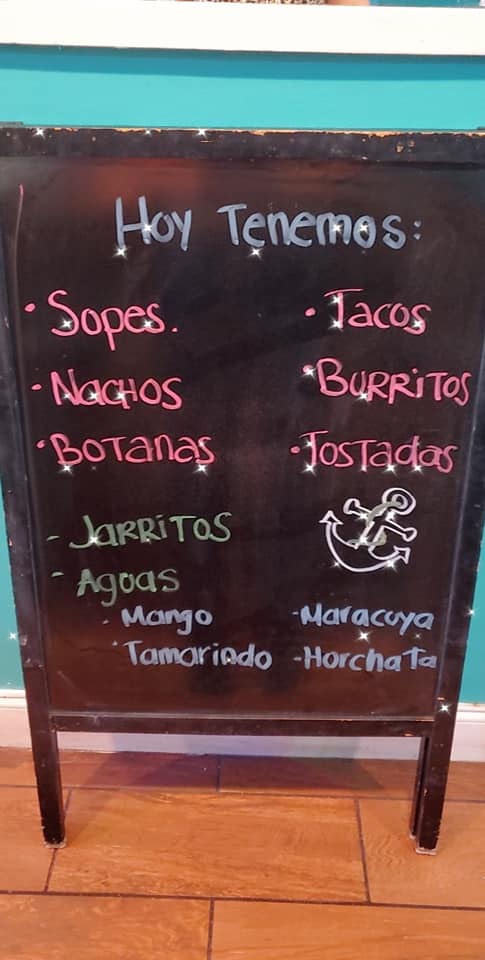 Hoy Tenemos:
• Sopes.
• Nachos
• Botanas
• Tacos
• Burritos
• Tostadas
- Jarritos
- Aguas
- Mango
- Tamarindo
- Maracuya
- Horchata